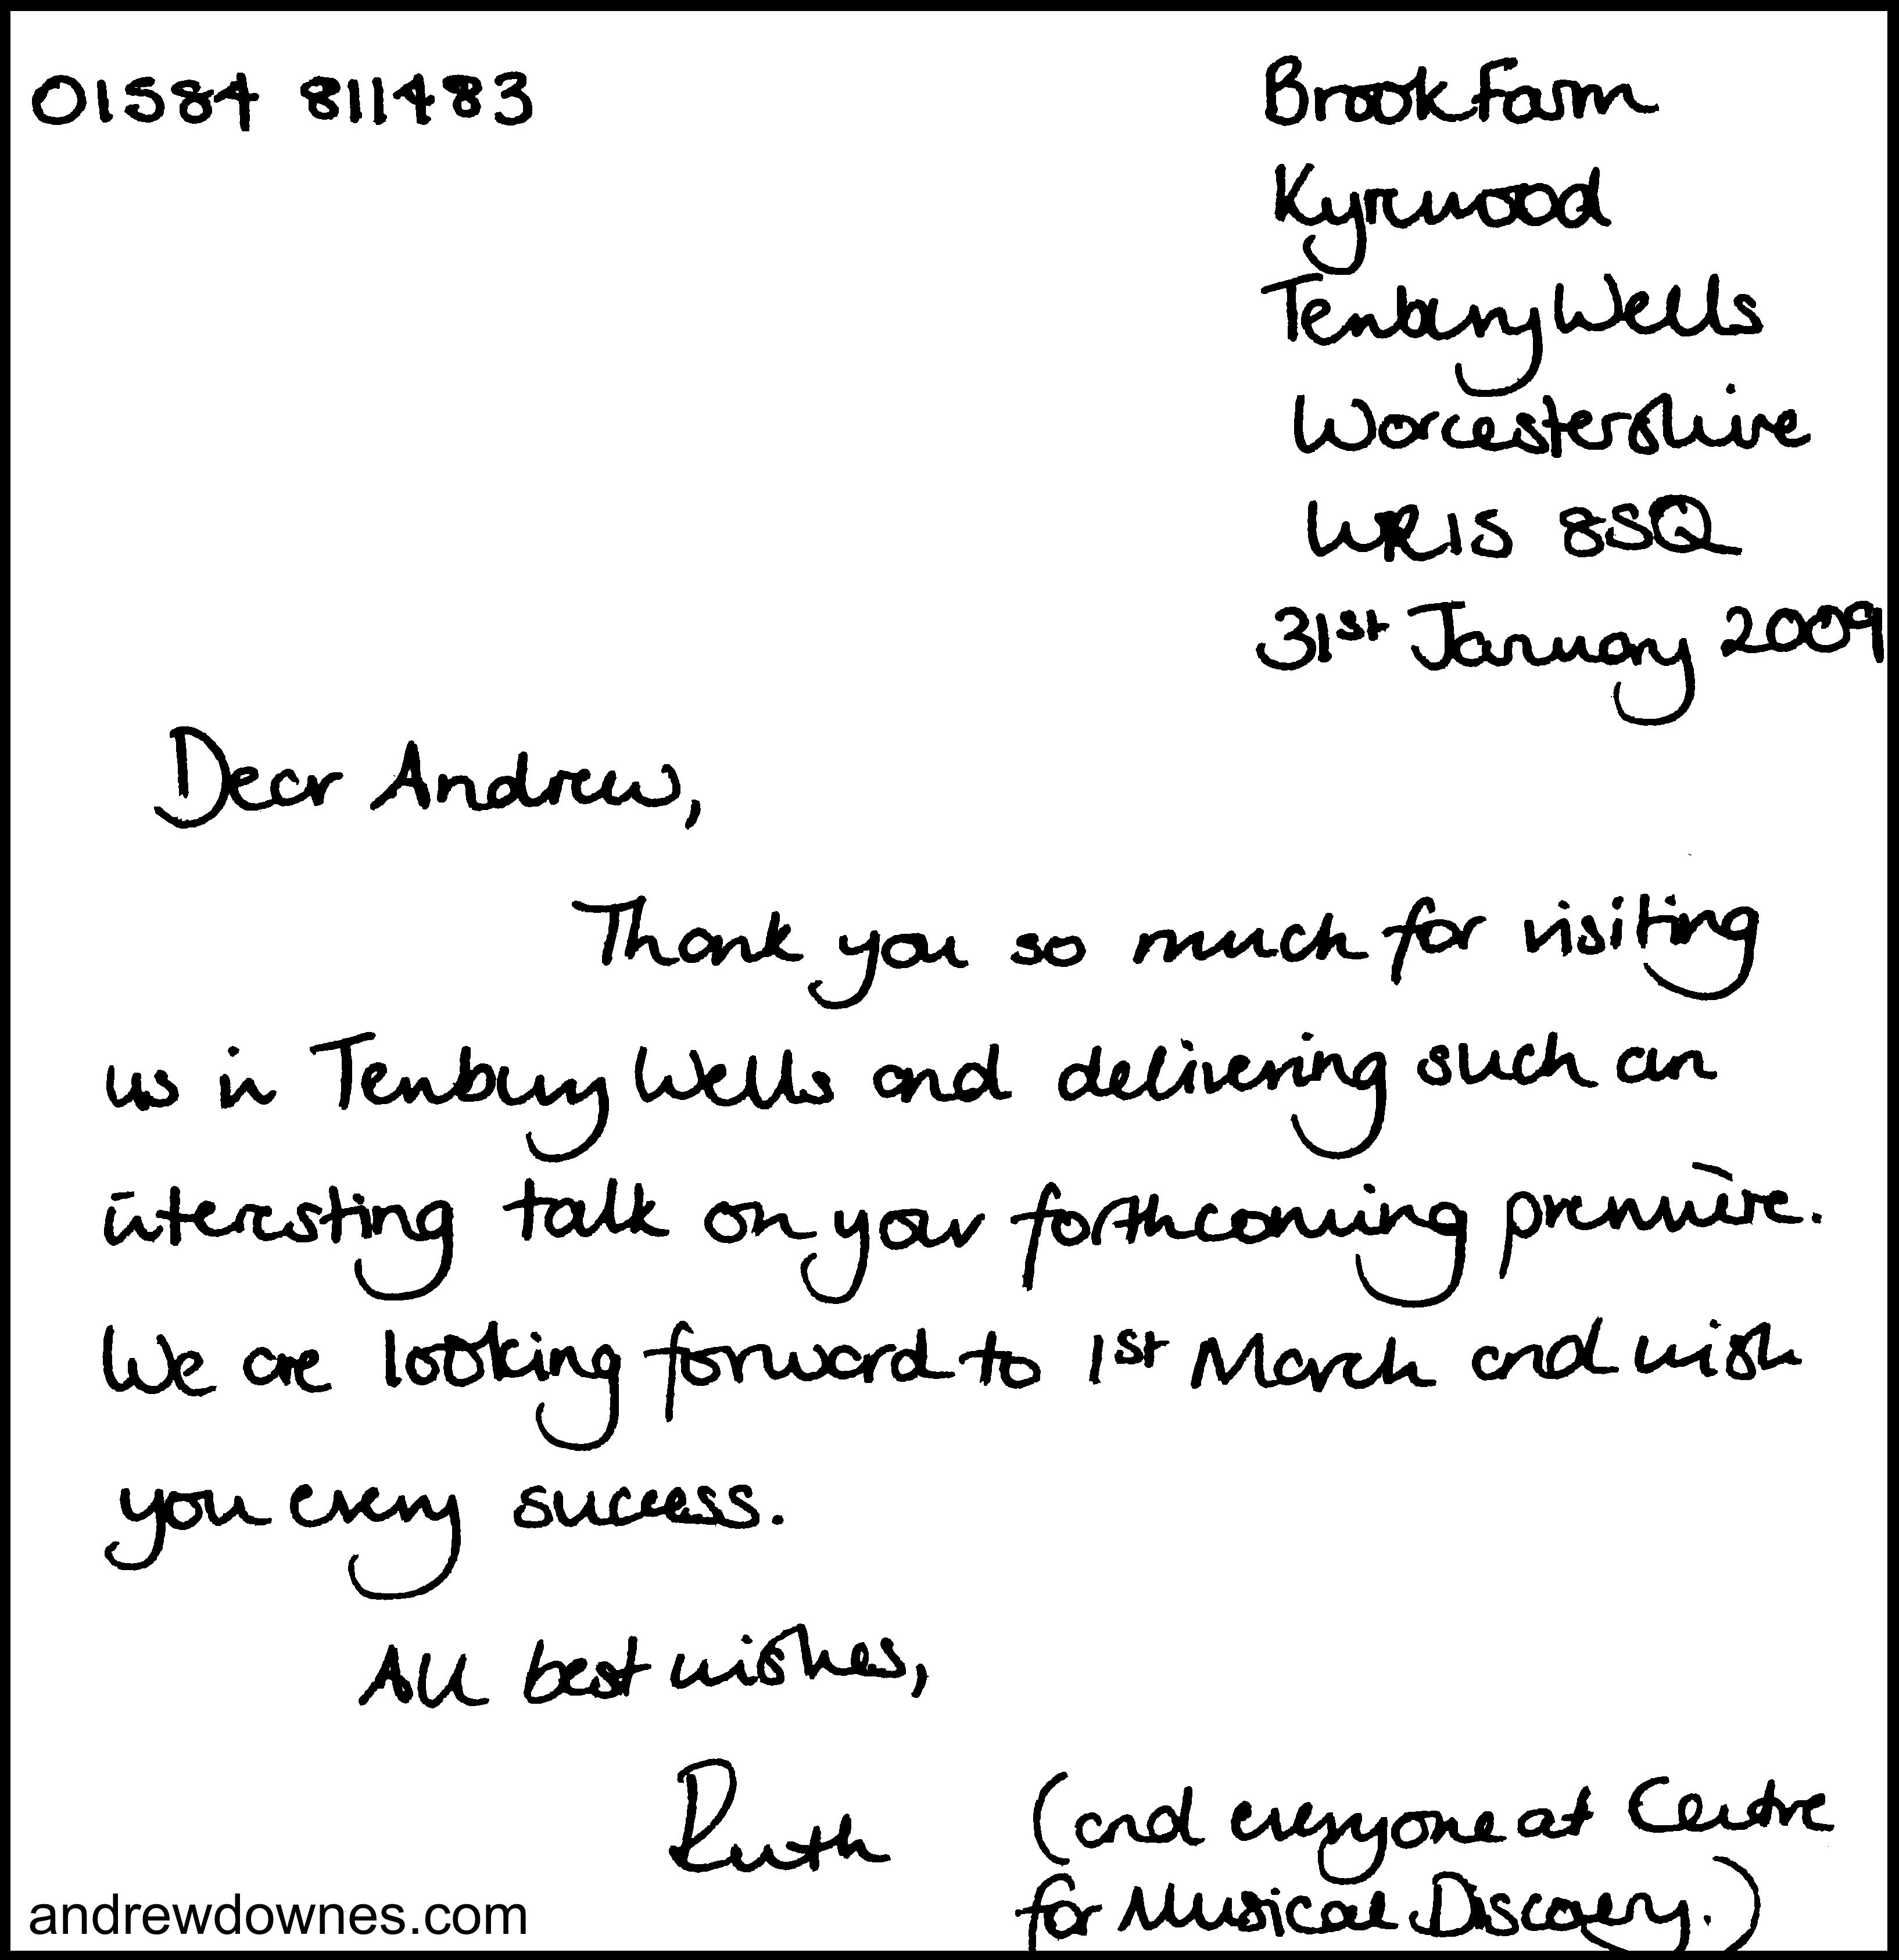 01584 811483
Brook Farm
Kyrewood
Tenbury Wells
Worcestershire
WR15 8SQ
31st January 2009
Dear Andrew,
Thank you so much for visiting
us in Tenbury Wells and delivering such an
interesting talk on your forthcoming première.
We are looking forward to 1st March and wish
you every success.
All best wishes,
Ruth (and everyone at Centre
for Musical Discovery.)
andrewdownes.com